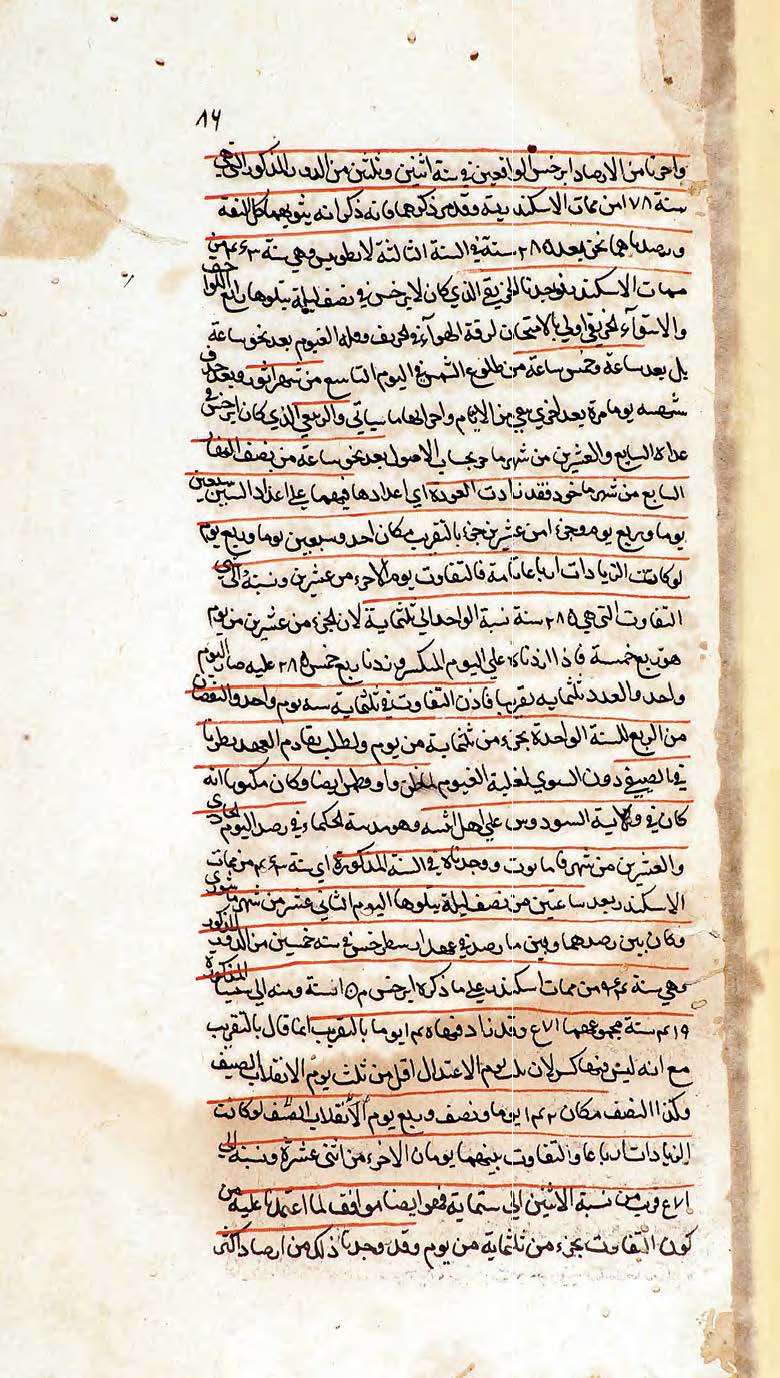 ٨٦
واخرنا من الارصاد ابرخس الواقعين في سنة اثنين وثلثين من الدور المذكور التي هي
سنة ١٧٨ من ممات الاسكندر بية وقد من ذكرهما فانه ذكر انه يثق بهما كل الثقة
وبرصدناهما نحن بعد ٢٨٥ سنة في السنة الثالثة لانطونيس وهي سنة ٤٦٣ من
ممات الاسكندر فوجدنا الخريفي الذي كان لابرخس في نصف ليلة يتلوها رابع
والاستواء الخريفي اولى بالامتحان لرقة الهواء في الخريف وقلة الغيوم بعد نحو ساعة
بل بعد ساعة وخمس ساعة من طلوع الشمس في اليوم التاسع من شهر اثور وبعد
شهسه يوما مرة بعد اخرى هي من الايام واحوالها ما سياتي والربيعي الذي كان ابرخس في
غداة السابع والعشرين من شهر ماخر بحساب الاصول بعد نحو ساعة من نصف النهار
السابع من شهر ماخور فقد زادت العودة اي اعدادها فيهما على اعداد السنين سبعين
يوما وربع يوم وجزء من عشرين جزء بالتقريب مكان احد وسبعين يوما وربع يوم
لو كانت الزيادات ارباعا تامة فالتفاوت يوم الاجزء من عشرين ونسبة الى
التفاوت التي هي ٢٨٥ سنة نسبة الواحد الى ثلثماية لان الجزء من عشرين من يوم
هو ربع خمسة فاذا زدناه على اليوم المنكسر وزدنا ربع خمس ٢٨٥ عليه صار اليوم
واحد والعدد ثلثمايه تقريبا فاذن التفاوت في ثلثمايه سنه يوم واحد والنقصان
من الربع للسنة الواحدة بجزء من ثلثماية من يوم ولطلب تقادم العهد نظرنا
في الصيفي دون الشتوي لغلبة الغيوم وافطمن ايضا وكان مكتوبا انه
كان في ولاية السودوس على اهل اثنيه وهو مدينة الحكماء في رصد اليوم الحادي
والعشرين من شهر فامانوت ووجدناه في السنة المذكورة اي سنة ٤٦٣ من ممات
الاسكندر بعد ساعتين من نصف ليلة يتلوها اليوم الثاني عشر من شهر ماسوري
وكان بين رصدهما وبين ما رصد في عهد ارسطرخس في سنة خمسين من الدور المذكور
وهي سنة ٤٤ من ممات اسكندر على ما ذكره ابرخس ١٥٢ سنة ومنه الى سنتنا المذكورة
٤١٩ سنة مجموعهما ٥٧١ وقد زاد فيها ١٤٠ يوما بالتقريب انما قال بالتقريب
مع انه ليس فيها كسر لان ثلث يوم الاعتدال اقل من ثلث يوم الانقلاب الصيف
وكذا النصف مكان ١٤٢ يوما ونصف وربع يوم الانقلاب الصيف لو كانت
الزيادات ارباعا والتفاوت بينهما يومان الاجزء من اثنى عشرة ونسبته الى
٥٧١ قريب من نسبة الاثنين الى ستماية فهو ايضا موافق لما اعتمدنا عليه من
كون التفاوت بجزء من ثلثماية من يوم وقد وجدنا ذلك من ارصاد اكثر